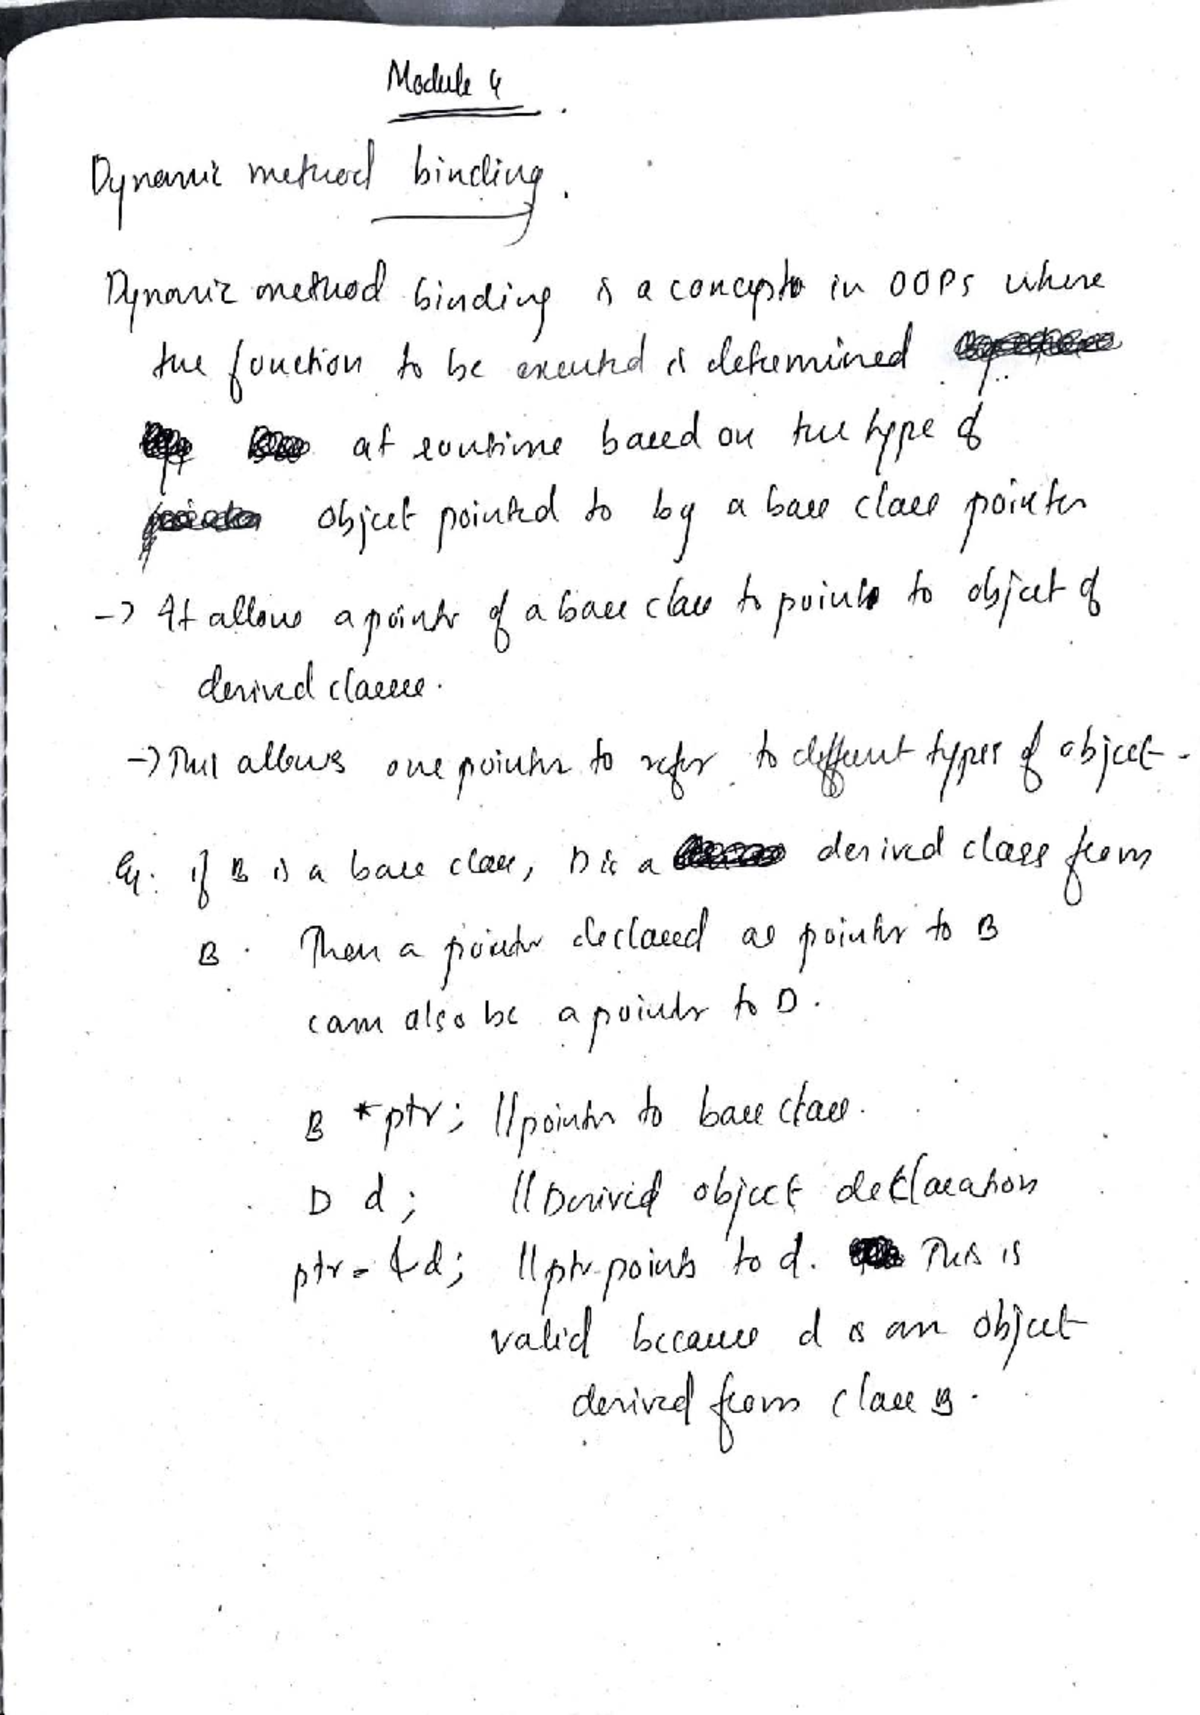 Module 4
Dynamic method binding.
Dynamic method binding is a concept in OOPs where
the function to be executed is determined
at runtime based on the type of
object pointed to by a base class pointer
-> It allows a pointer of a base class to points to object of
derived classes.
-> This allows one pointer to refer to different types of object.
Eg: if B is a base class, D is a derived class from
B. Then a pointer declared as pointer to B
can also be a pointer to D.
B *ptr; //pointer to base class.
D d; //Derived object declaration
ptr = &d; //ptr points to d. This is
valid because d is an object
derived from class B.